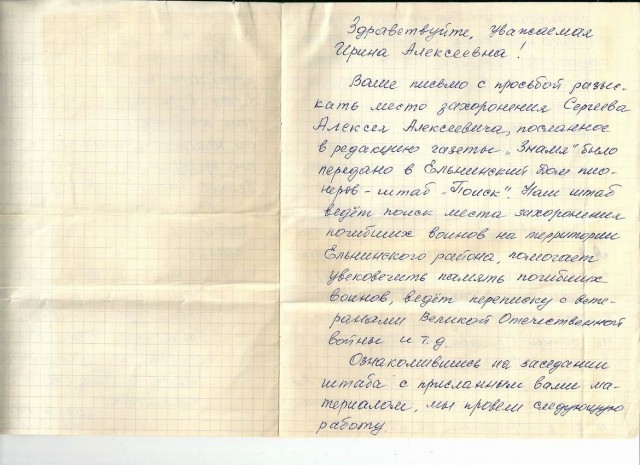 Здравствуйте, уважаемая
Ирина Алексеевна!
Ваше письмо с просьбой разыс-
кать место захоронения Сергеева
Алексея Алексеевича, посланное
в редакцию газеты „Знамя" было
передано в Ельнинский Дом пио-
неров - штаб „Поиск". Наш штаб
ведёт поиск места захоронения
погибших воинов на территории
Ельнинского района, помогает
увековечить память погибших
воинов, ведёт переписку с вете-
ранами Великой Отечественной
войны и т.д.
Ознакомившись на заседании
штаба с присланным вами ма-
териалом, мы провели следующую
работу.